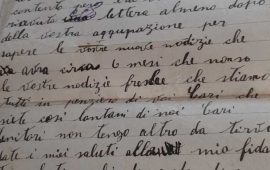 contento però
ricevuto lettera almeno dopo
della vostra aqqupazione per
sapere le vostre nuove nodizie che
avra circa 6 mesi che nonso
le vostre nodizie freske che stiamo
tutti in penziero di voi Cari che
siete cosi lontani di noi Cari
Genitori non tengo altro da tirvi
date i miei saluti alla mio fida